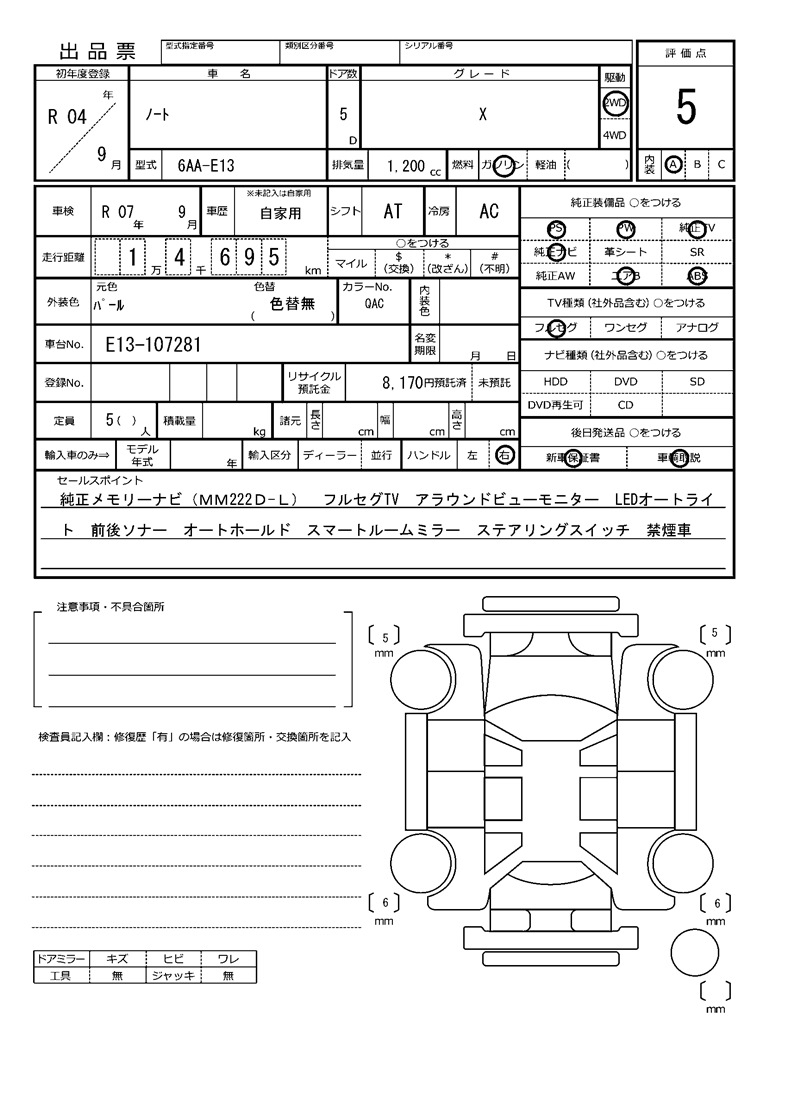 出品票
型式指定番号 類別区分番号 シリアル番号
評価点
初年度登録 車名 ドア数 グレード 駆動
R 04 年 ノート 5 D X 2WD 5
9 月 4WD
型式 6AA-E13 排気量 1,200 cc 燃料 ガソリン 軽油 ( ) 内装 A B C
車検 R 07 年 9 月 車歴 ※未記入は自家用 自家用 シフト AT 冷房 AC 純正装備品 ○をつける
PS PW 純正TV
走行距離 1 万 4 千 6 9 5 km ○をつける
マイル $ (交換) * (改ざん) # (不明)
純正ナビ 革シート SR
純正AW エアB ABS
外装色 元色 パール 色替 色替無 ( ) カラーNo. QAC 内装色
TV種類 (社外品含む) ○をつける
フルセグ ワンセグ アナログ
車台No. E13-107281 名変期限 月 日
ナビ種類 (社外品含む) ○をつける
登録No. リサイクル預託金 8,170円預託済 未預託
HDD DVD SD
DVD再生可 CD
定員 5 ( ) 人 積載量 kg 諸元 長さ cm 幅 cm 高さ cm
後日発送品 ○をつける
輸入車のみ⇒ モデル年式 年 輸入区分 ディーラー 並行 ハンドル 左 右
新車保証書 車輌取説
セールスポイント
純正メモリーナビ（MM222D-L） フルセグTV アラウンドビューモニター LEDオートライ
ト 前後ソナー オートホールド スマートルームミラー ステアリングスイッチ 禁煙車
注意事項・不具合箇所
5 mm
5 mm
検査員記入欄：修復歴「有」の場合は修復箇所・交換箇所を記入
6 mm
6 mm
ドアミラー キズ ヒビ ワレ
工具 無 ジャッキ 無
mm